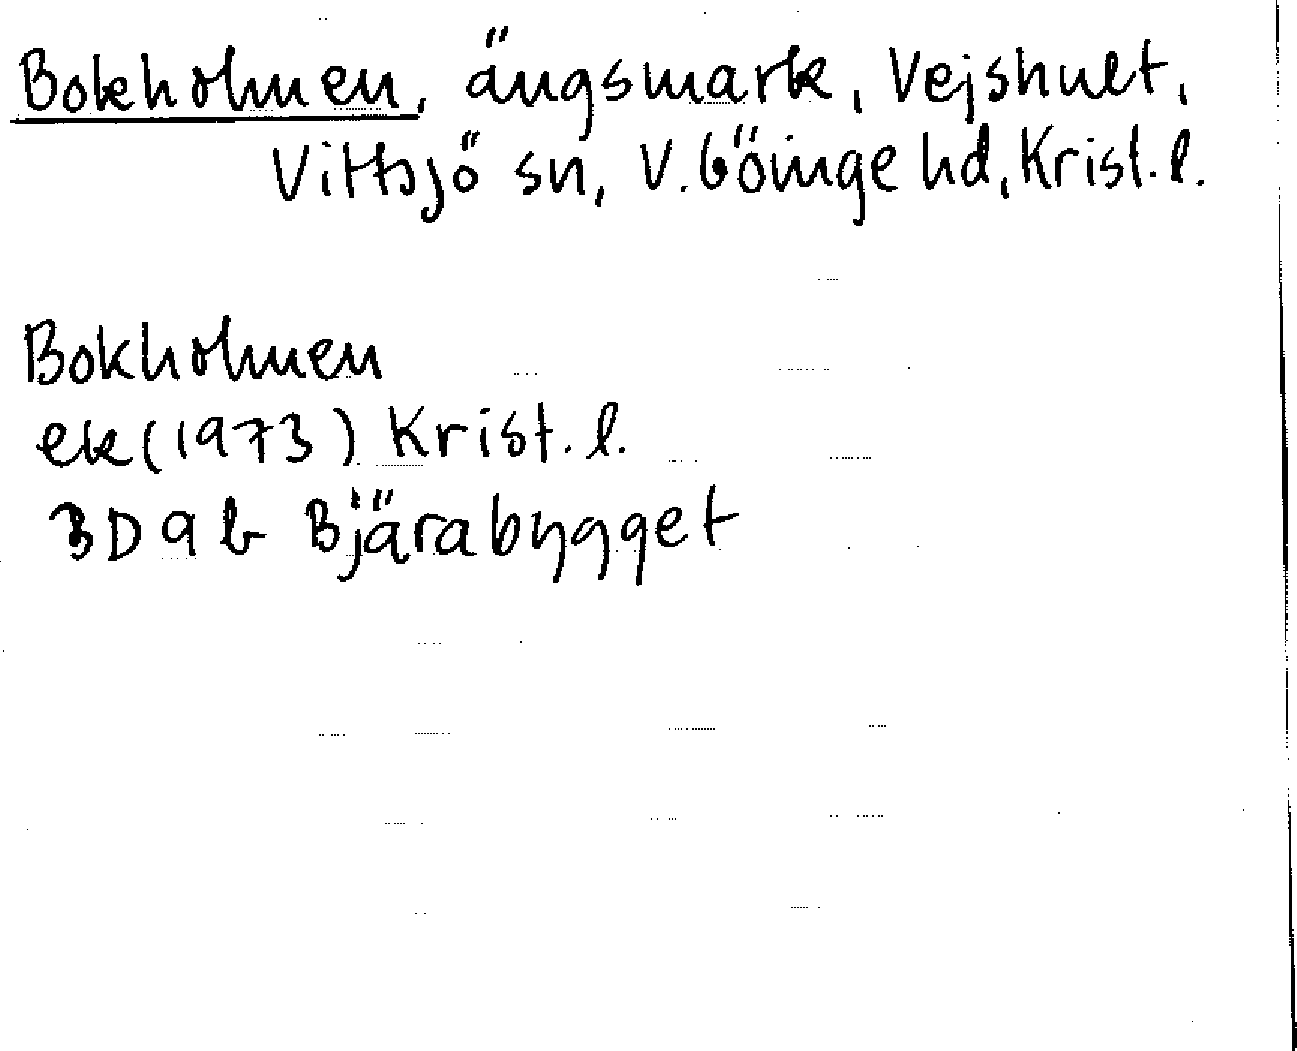 Bokholmen, ängsmark, Vejshult,
Vittsjö sn, V. Göinge hd, Krist. l.
Bokholmen
ek (1973) Krist. l.
3D 9 b Bjärabygget